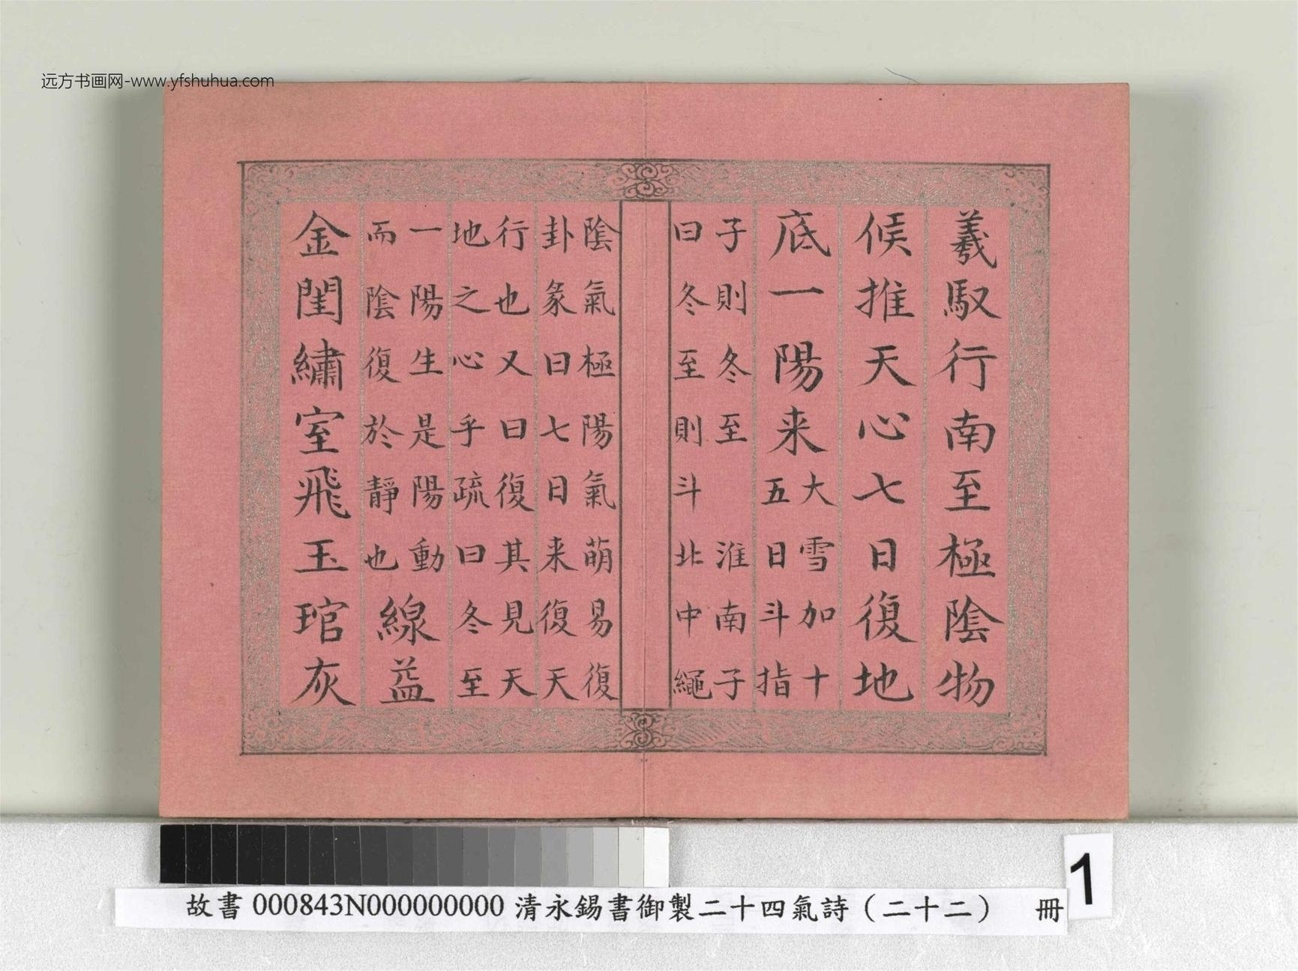 远方书画网-www.yfshuhua.com
羲馭行南至極陰物
候推天心七日復地
底一陽来
大雪加十
五日斗指
子則冬至　淮南子
曰冬至則斗北中繩
陰氣極陽氣萌易復
卦彖曰七日来復天
行也又曰復其見天
地之心乎疏曰冬至
一陽生是陽動
而陰復於靜也
線益
金閨繡室飛玉琯灰
故書 000843N000000000 清永錫書御製二十四氣詩（二十二） 冊
1